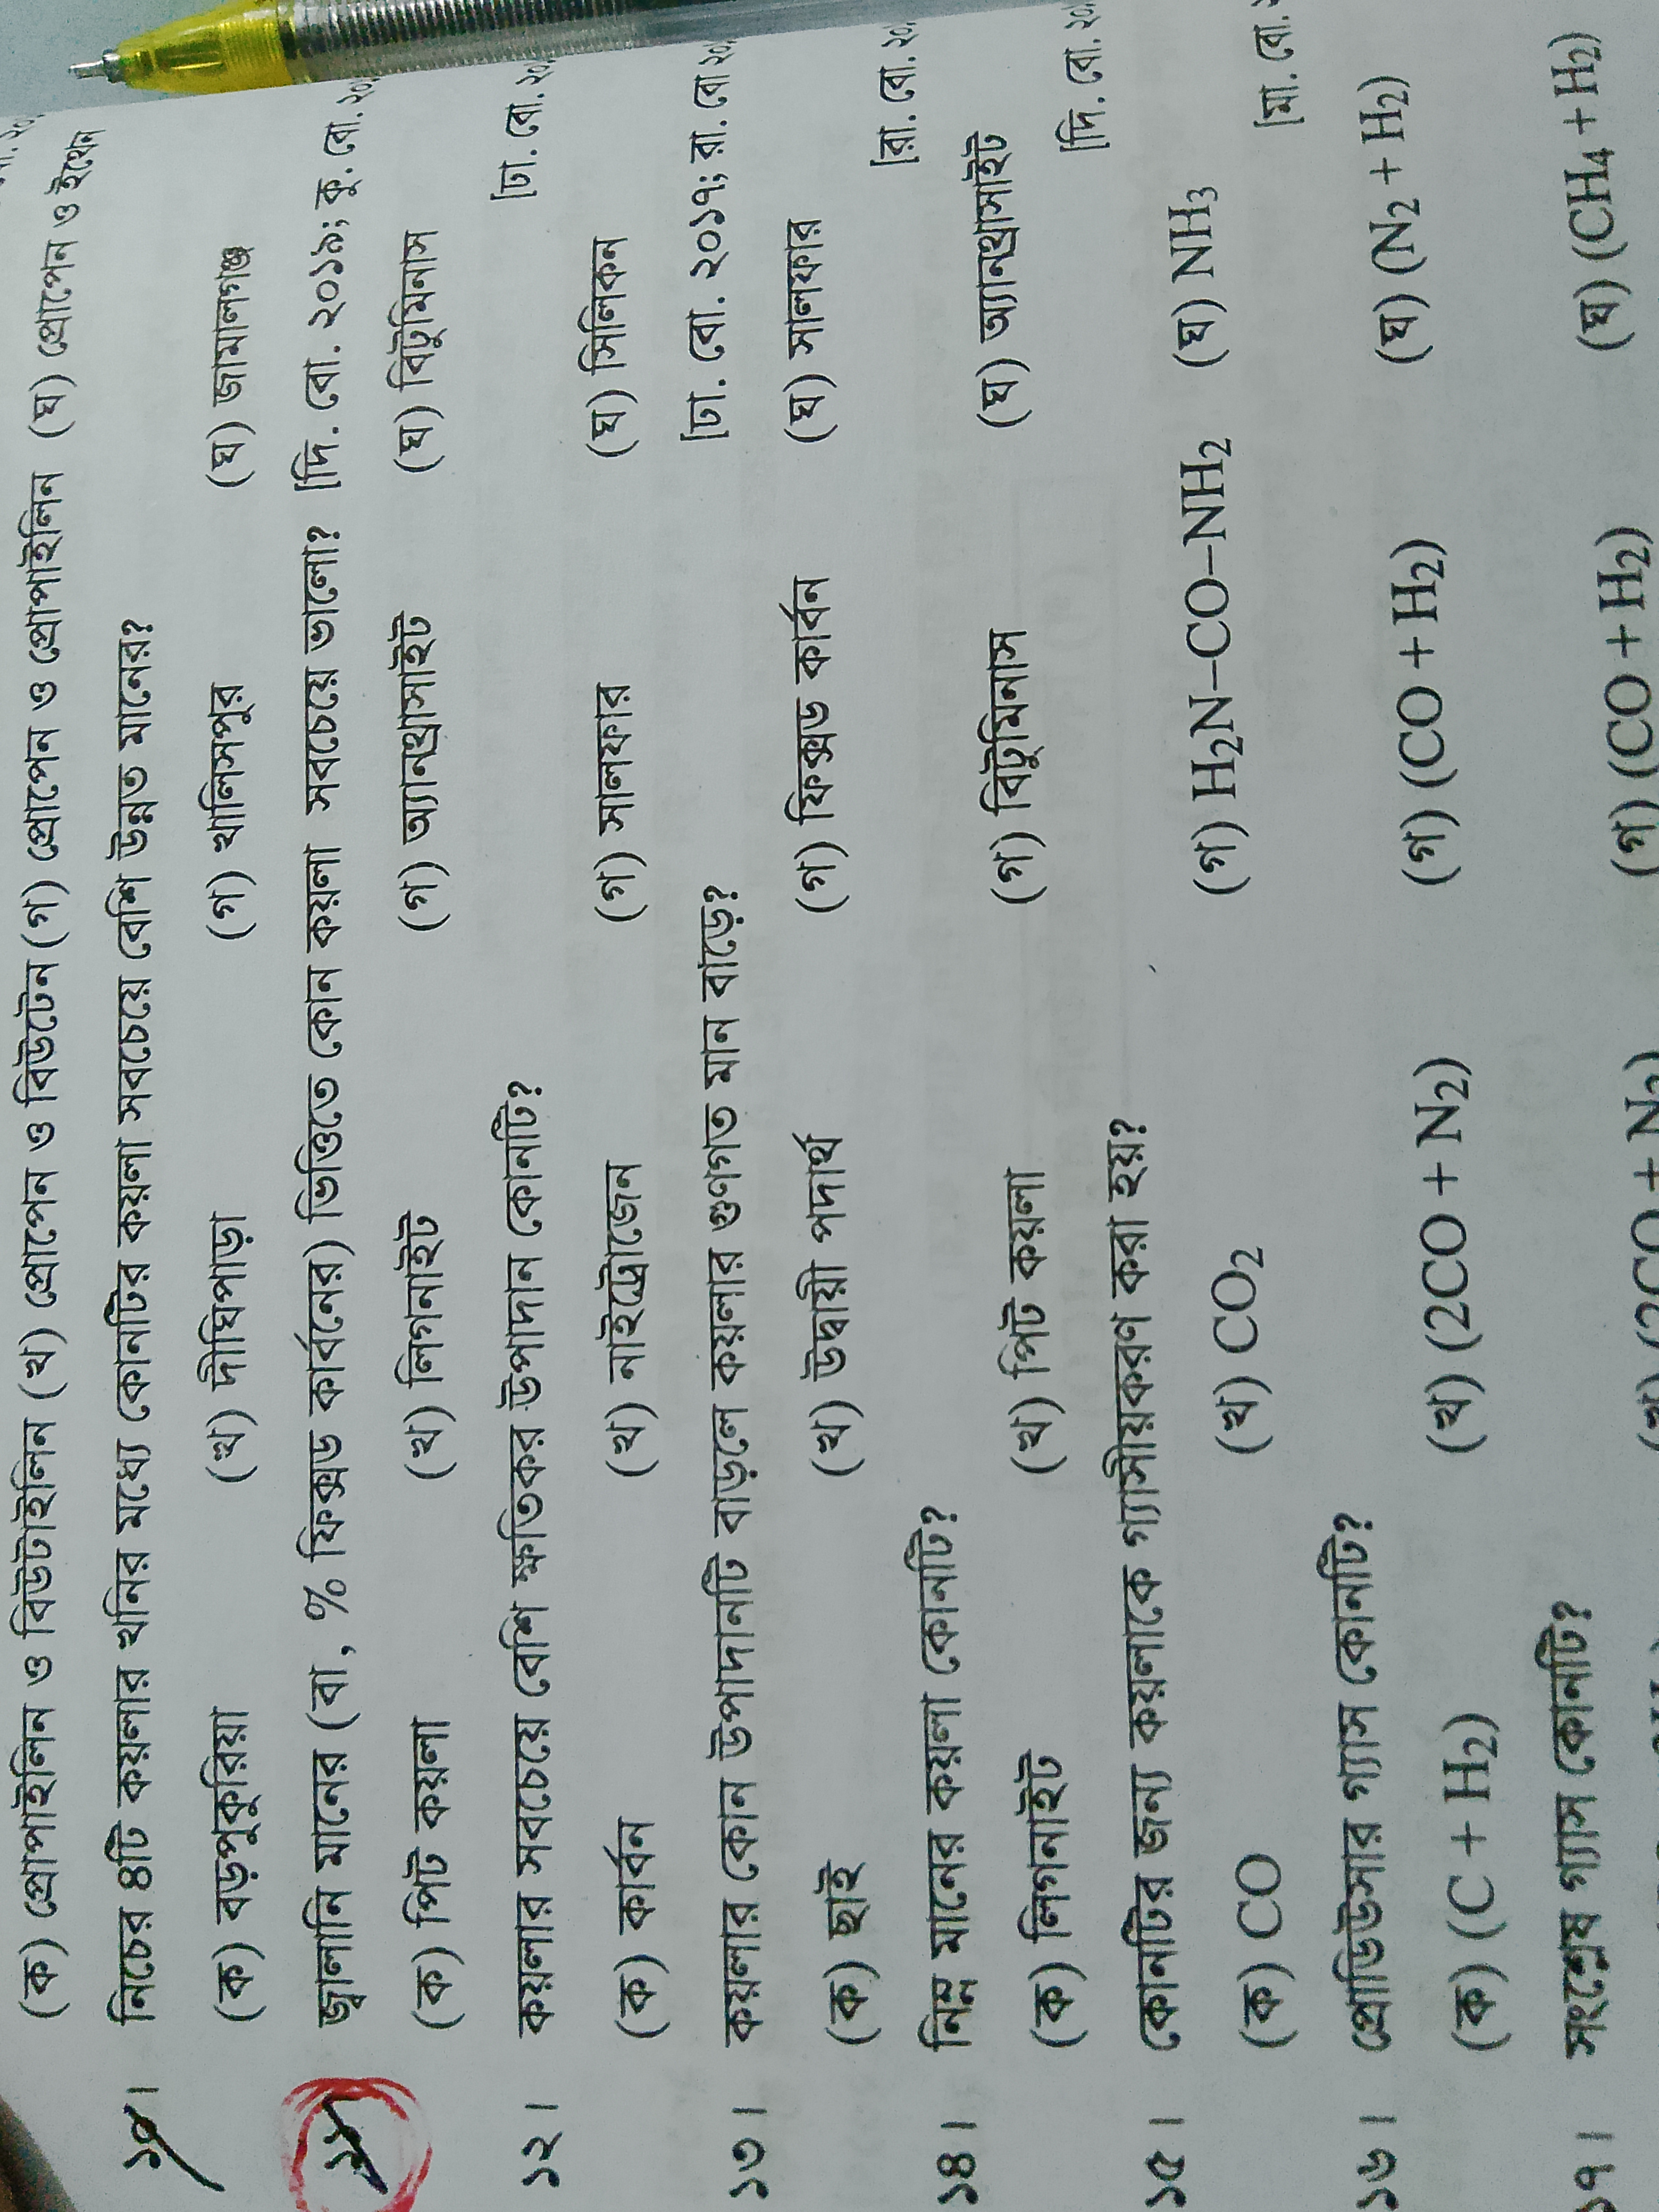 (ক) প্রোপাইলিন ও বিউটাইলিন (খ) প্রোপেন ও বিউটেন (গ) প্রোপেন ও প্রোপাইলিন (ঘ) প্রোপেন ও ইথেন
১০। নিচের ৪টি কয়লার খনির মধ্যে কোনটির কয়লা সবচেয়ে বেশি উন্নত মানের?
(ক) বড়পুকুরিয়া (খ) দীঘিপাড়া (গ) খালিসপুর (ঘ) জামালগঞ্জ
১১ জ্বালানি মানের (বা, % ফিক্সড কার্বনের) ভিত্তিতে কোন কয়লা সবচেয়ে ভালো? [দি. বো. ২০১৯; কু. বো. ২০
(ক) পিট কয়লা (খ) লিগনাইট (গ) অ্যানথ্রাসাইট (ঘ) বিটুমিনাস
১২। কয়লার সবচেয়ে বেশি ক্ষতিকর উপাদান কোনটি? [ঢা. বো. ২০
(ক) কার্বন (খ) নাইট্রোজেন (গ) সালফার (ঘ) সিলিকন
১৩। কয়লার কোন উপাদানটি বাড়লে কয়লার গুণগত মান বাড়ে? [ঢা. বো. ২০১৭; রা. বো ২০
(ক) ছাই (খ) উদ্বায়ী পদার্থ (গ) ফিক্সড কার্বন (ঘ) সালফার
১৪। নিম্ন মানের কয়লা কোনটি? [রা. বো. ২০
(ক) লিগনাইট (খ) পিট কয়লা (গ) বিটুমিনাস (ঘ) অ্যানথ্রাসাইট
১৫। কোনটির জন্য কয়লাকে গ্যাসীয়করণ করা হয়? [দি. বো. ২০
(ক) CO (খ) CO₂ (গ) H₂N–CO–NH₂ (ঘ) NH₃
১৬। প্রোডিউসার গ্যাস কোনটি? [মা. বো.
(ক) (C + H₂) (খ) (2CO + N₂) (গ) (CO + H₂) (ঘ) (N₂ + H₂)
১৭। সংশ্লেষ গ্যাস কোনটি?
(খ) (2CO + N₂) (গ) (CO + H₂) (ঘ) (CH₄ + H₂)